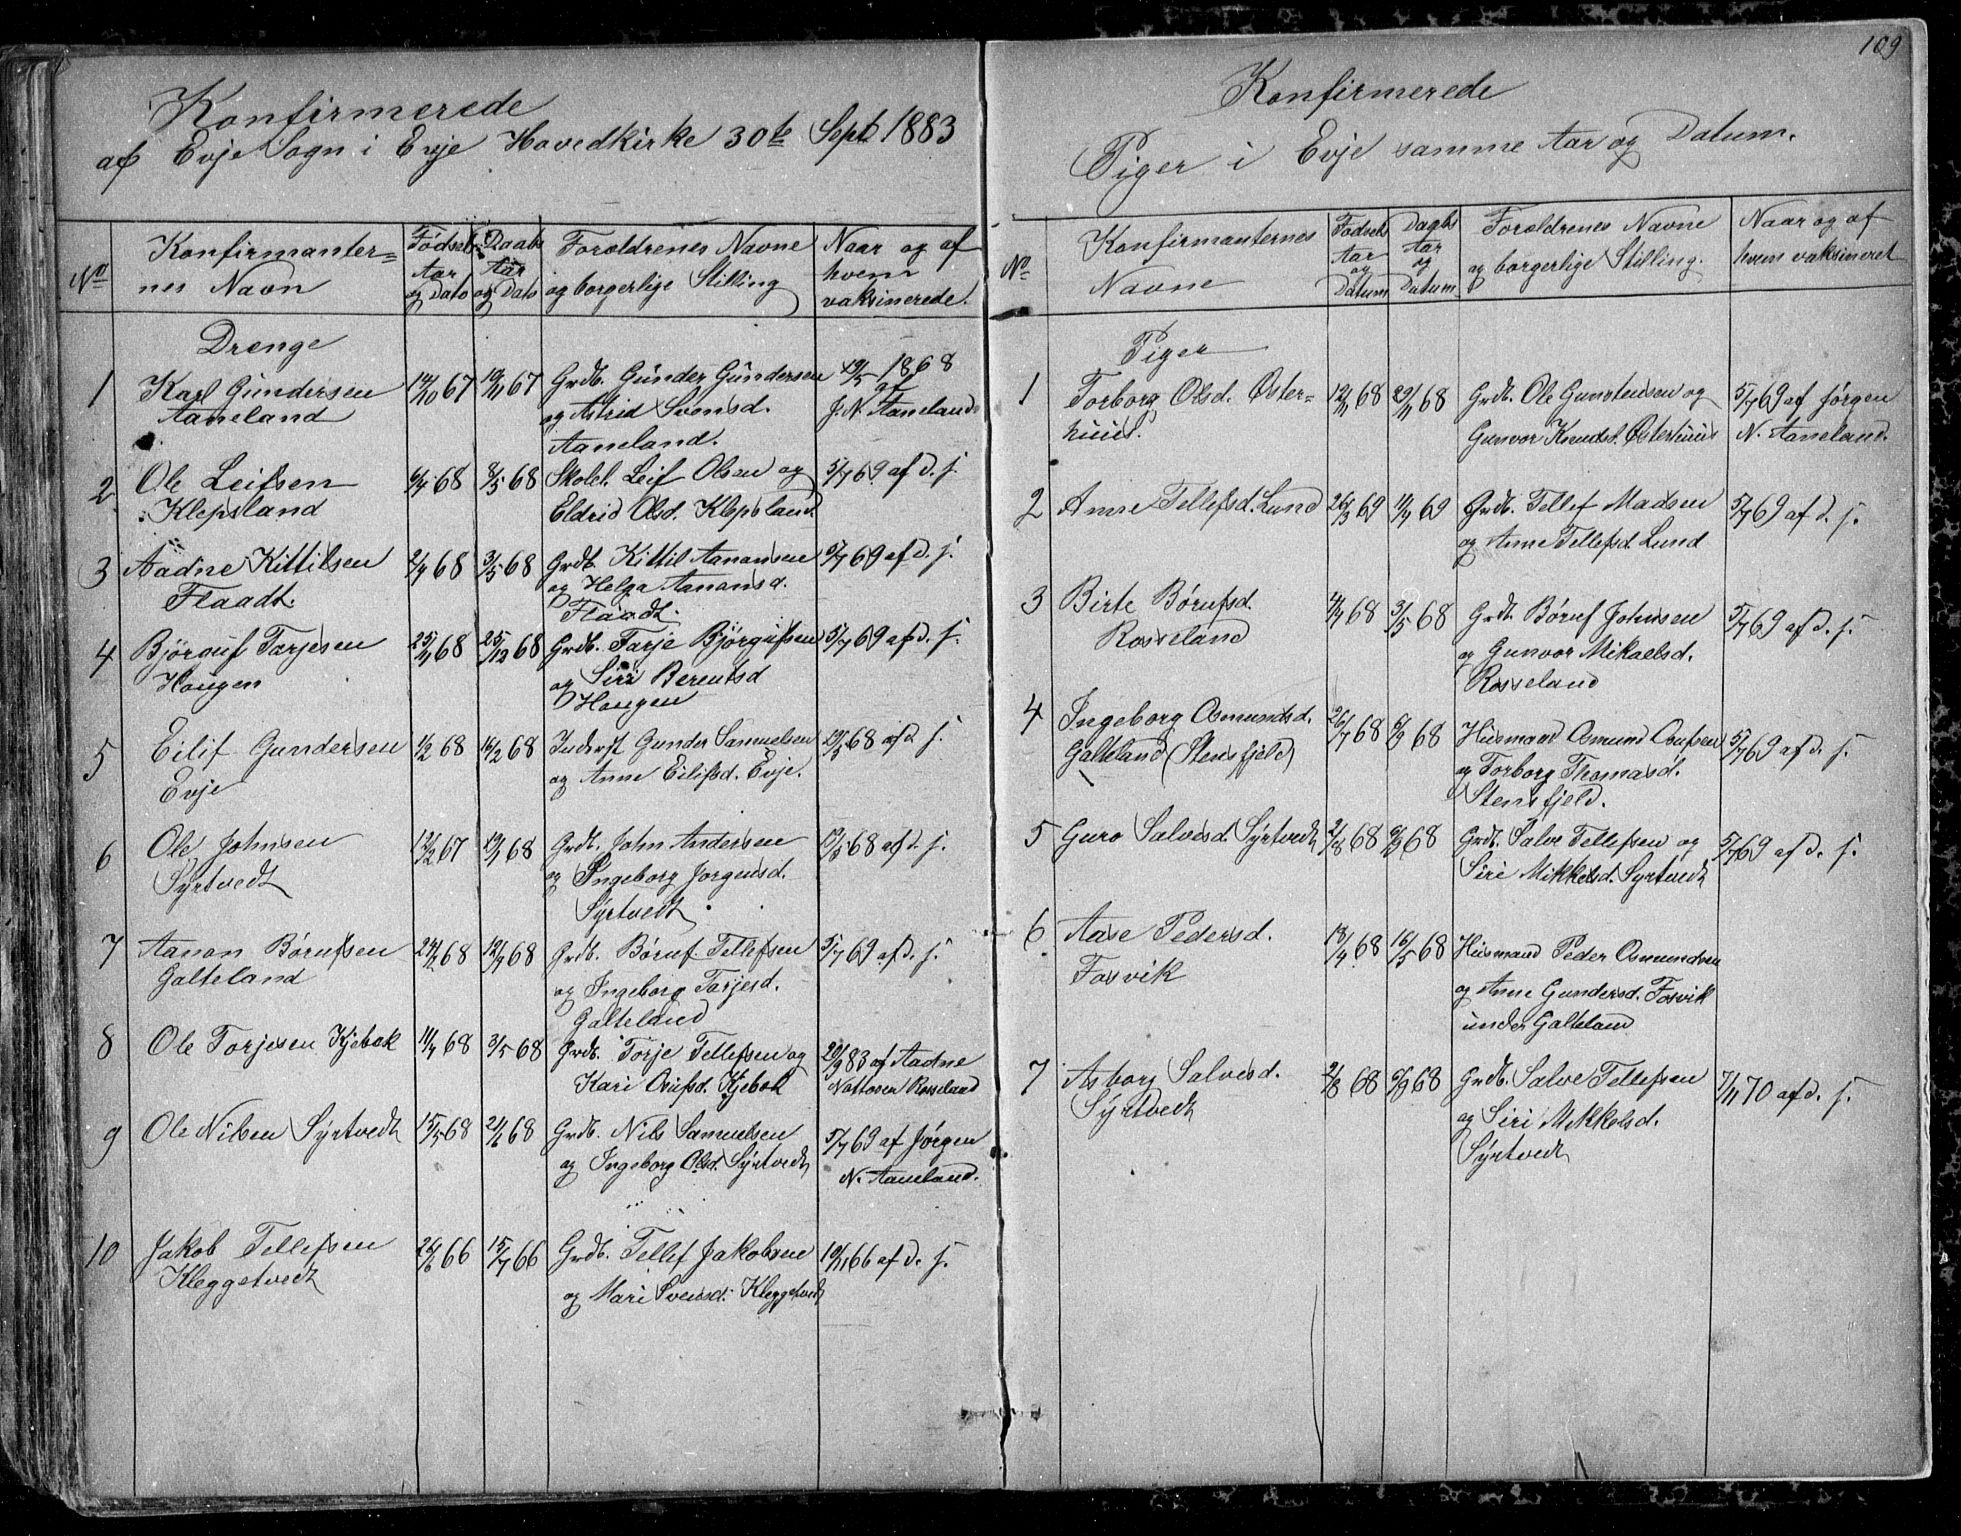 Konfirmerede
af Evje Sogn i Evje Hovedkirke 30te Sept 1883
No
Konfirmanter=
nes Navn
Fødsels
Aar
og Dato
Daabs
Aar
og Dato
Forældrenes Navne
og borgerlige Stilling
Naar og af
hvem
vaksinerede.
Drenge
1
Karl Gundersen
Aaneland
14/10 67
10/11 67
Grdb. Gunder Gundersen
og Astrid Svensd.
Aaneland.
19/5 1868
af
J. N. Aaneland
2
Ole Leifsen
Klepsland
6/4 68
8/5 68
Skolel. Leif Olsen og
Eldrid Olsd. Klepsland
5/7 69 af d. s.
3
Aadne Kittilsen
Flaadt.
2/4 68
3/5 68
Grdb. Kittil Aanonsen
og Helga Aanonsd.
Flaadt.
5/7 69 af d. s.
4
Bjørguf Tarjesen
Hougen
25/11 68
25/12 68
Grdb. Tarje Bjørgufsen
og Siri Berentsd
Hougen
5/7 69 af d. s.
5
Eilif Gundersen
Evje
1/2 68
16/2 68
Inderst Gunder Samuelsen
og Anne Eilifsd. Evje.
68 af d s.
6
Ole Johnsen
Syrtvedt
12/12 67
19/1 68
Grdb. John Andersen
og Ingeborg Jorgensd.
Syrtvedt
68 af d. s.
7
Aanon Børufsen
Galteland
68
12/4 68
Grdb. Børuf Tellefsen
og Ingeborg Tarjesd.
Galteland
5/7 69 af d. s.
8
Ole Torjesen Kjebak
11/4 68
3/5 68
Grdb. Torje Tellefsen og
Kari Osufsd. Kjebak
20/9 83 af Aadne
Rosseland
9
Ole Nilsen Syrtvedt
15/5 68
21/6 68
Grdb. Nils Samuelsen
og Ingeborg Olsd. Syrtvedt
5/7 69 af Jørgen
N. Aaneland.
10
Jakob Tellefsen
Kleggetvedt
66
15/7 66
Grdb. Tellef Jakobsen
og Mari Svensd. Kleggetvedt
66 af d. s.
109
Konfirmerede
Piger i Evje samme Aar og Datum.
No
Konfirmanternes
Navne
Fødsels
Aar
og
Datum
Daabs
Aar
og
Datum
Forældrenes Navne
og borgerlige Stilling.
Naar og af
hvem vaksineret
Piger
1
Torborg Olsd. Øster=
huus.
12/11 68
29/11 68
Grdb. Ole Gunstensen og
Gunvor Knudsd. Østerhuus
5/7 69 af Jørgen
N. Aaneland.
2
Anne Tellefsd. Lund
26/3 69
11/4 69
Grdb. Tellef Madsen
og Anne Tellefsd. Lund
5/7 69 af d. s.
3
Birte Børufsd.
Rosseland
4/4 68
3/5 68
Grdb. Børuf Johnsen
og Gunvor Mikaelsd.
Rosseland
5/7 69 af d. s.
4
Ingeborg Osmundsd.
Galteland (Stensfjeld)
26/7 68
6/9 68
Husmand Osmund Osufsen
og Torborg Thomasd.
Stensfjeld.
5/7 69 af d. s.
5
Guro Salvesd. Syrtvedt
2/8 68
6/9 68
Grdb. Salve Tellefsen og
Siri Mikkelsd. Syrtvedt
5/7 69 af d. s.
6
Aase Pedersd.
Fosvik
18/4 68
16/5 68
Husmand Peder Osmundsen
og Anne Gundersd. Fosvik
under Galteland
7
Asborg Salvesd.
Syrtvedt
2/8 68
6/9 68
Grdb. Salve Tellefsen
og Siri Mikkelsd.
Syrtvedt
7/11 70 af d. s.